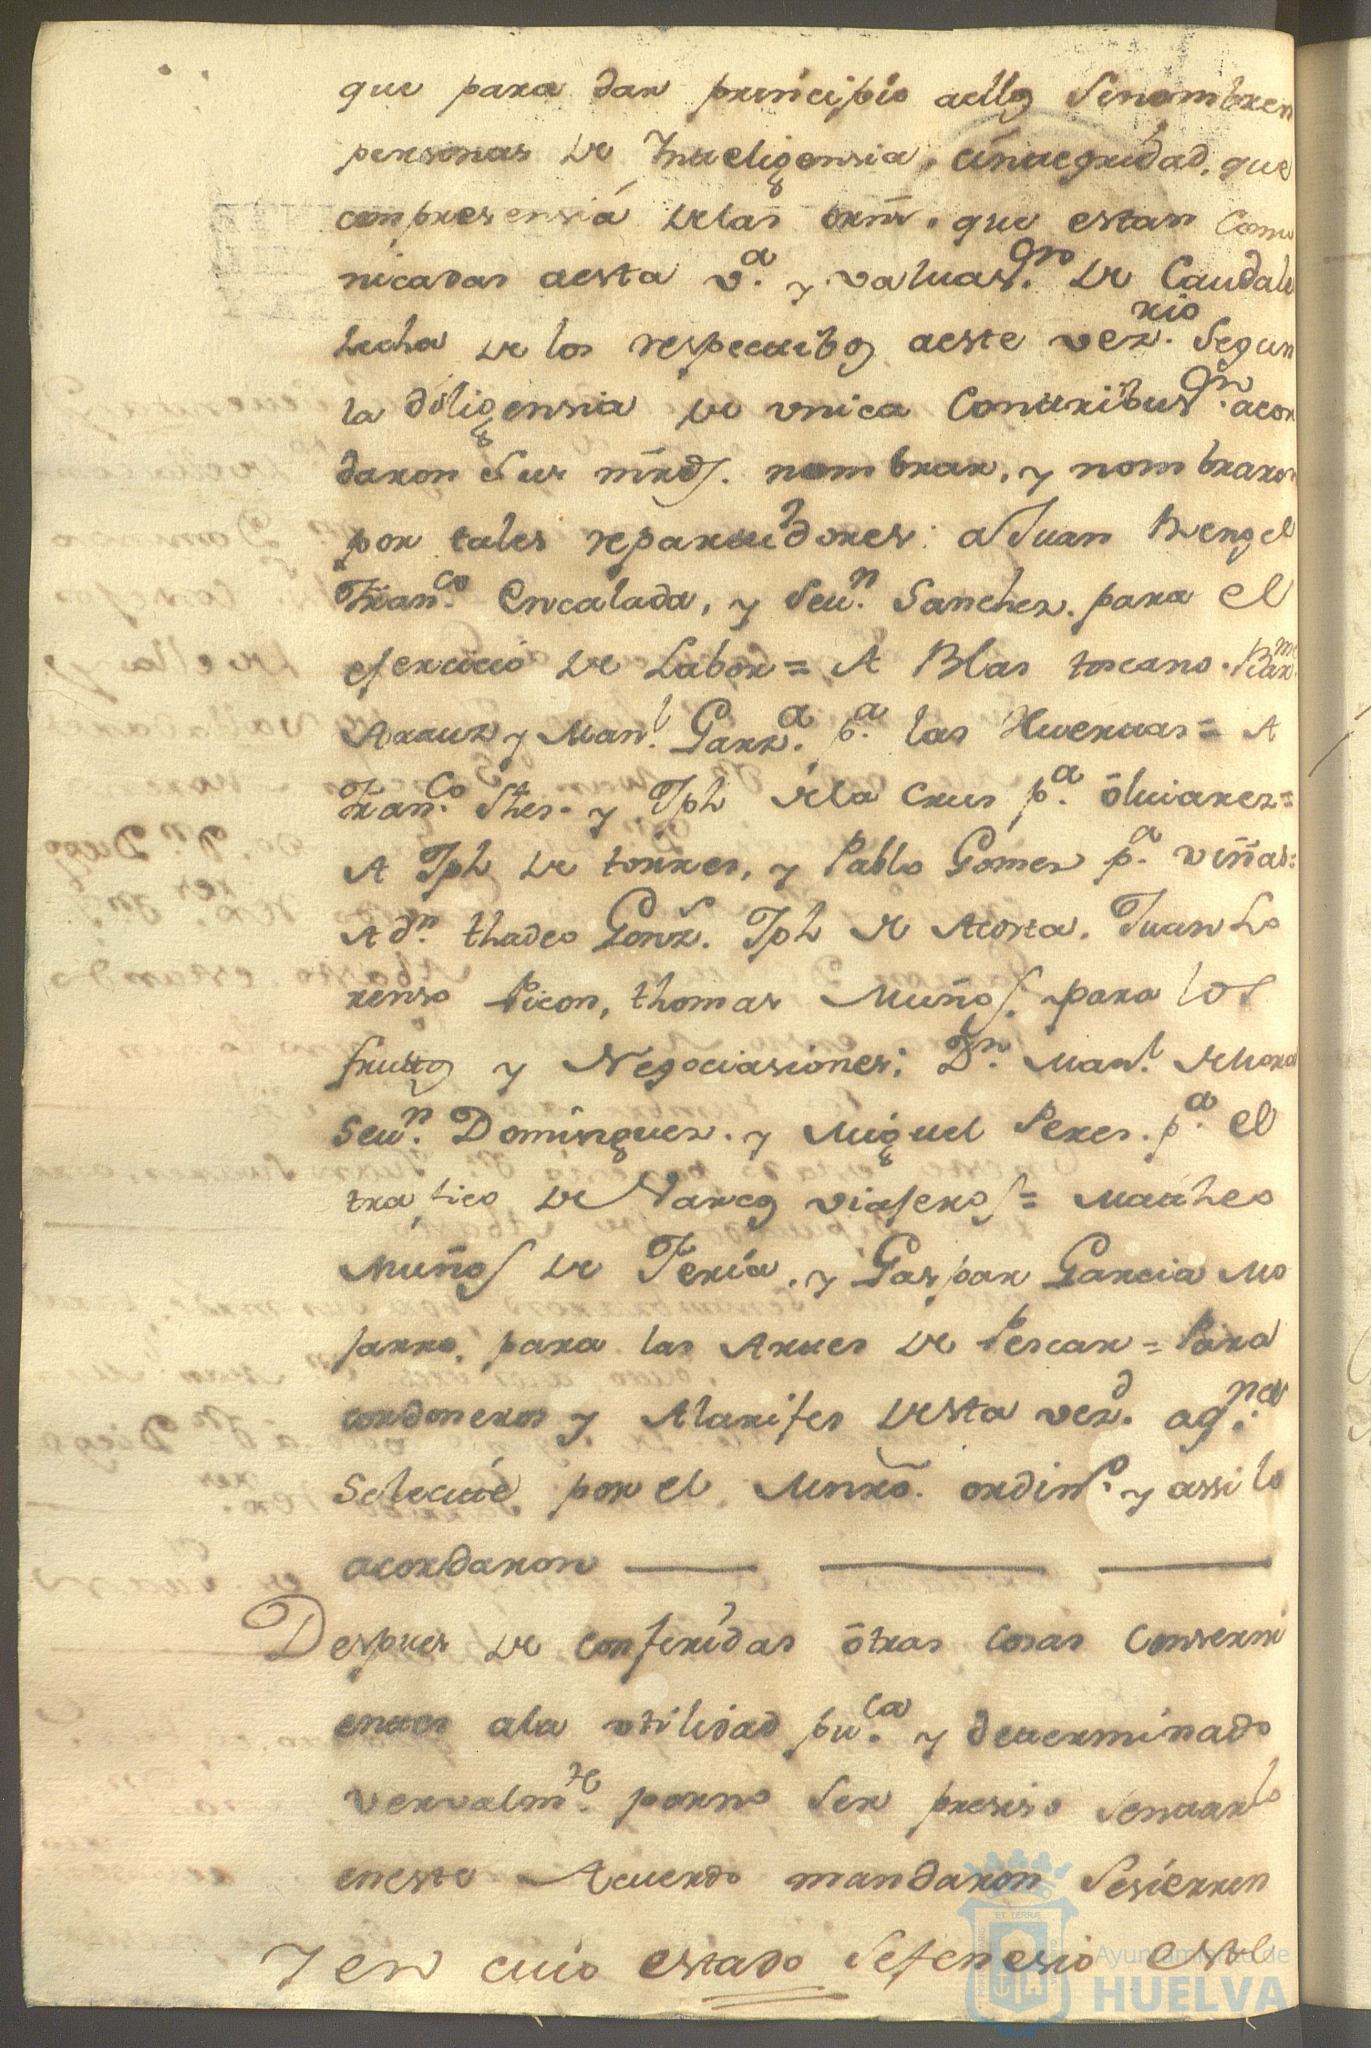 que para dar principio aello Senombren
personas de Inteligensia, eintegridad, que
conpresensiá delas orns. que estan comu
nicadas aesta v.ª y valuas.on de Caudale
hecha de los respectibos aeste vez.rio Segun
la diligensia de vnica Contribus.on acor
daron Sus mrds. nombrar, y nombraron
por tales repartidores: aJuan Rengel
Fran.co Encalada, y Seu.n Sanchez. para el
exersicio de Labor = A Blas toscano.
Arauz y Man.l Garz.a p.a las Huertas = A
Fran.co Shes. y Jph dela Crus p.a ōliuarez =
A Jph de torres, y Pablo Gomez p.a viñas =
A d.n thadeo Gonz. Jph de Acosta, Juan Lo
renso Picon, thomas Muños para los
frutos y Negociasiones; D.n Man.l de Mora
Seu.n Dominguez. y Miguel Peres. p.a el
trafico de Varcos viajeros = Matheo
Muños de Feria, y Gaspar Garcia Mo
jarro, para las Artes de Pescar = Para
cordoneros y Alarifes desta vez.d aq.nes
Selecite por el Mntro. ordin.o y assi lo
acordaron
Despues de conferidas ōtras cosas conserni
entes ala vtilidad pu.ca y determinado
vervalm.te porno Ser presiso Sentarlo
eneste Acuerdo mandaron Sesierren
Y en cuio estado Sefenesio este
Ayuntamiento de
HUELVA